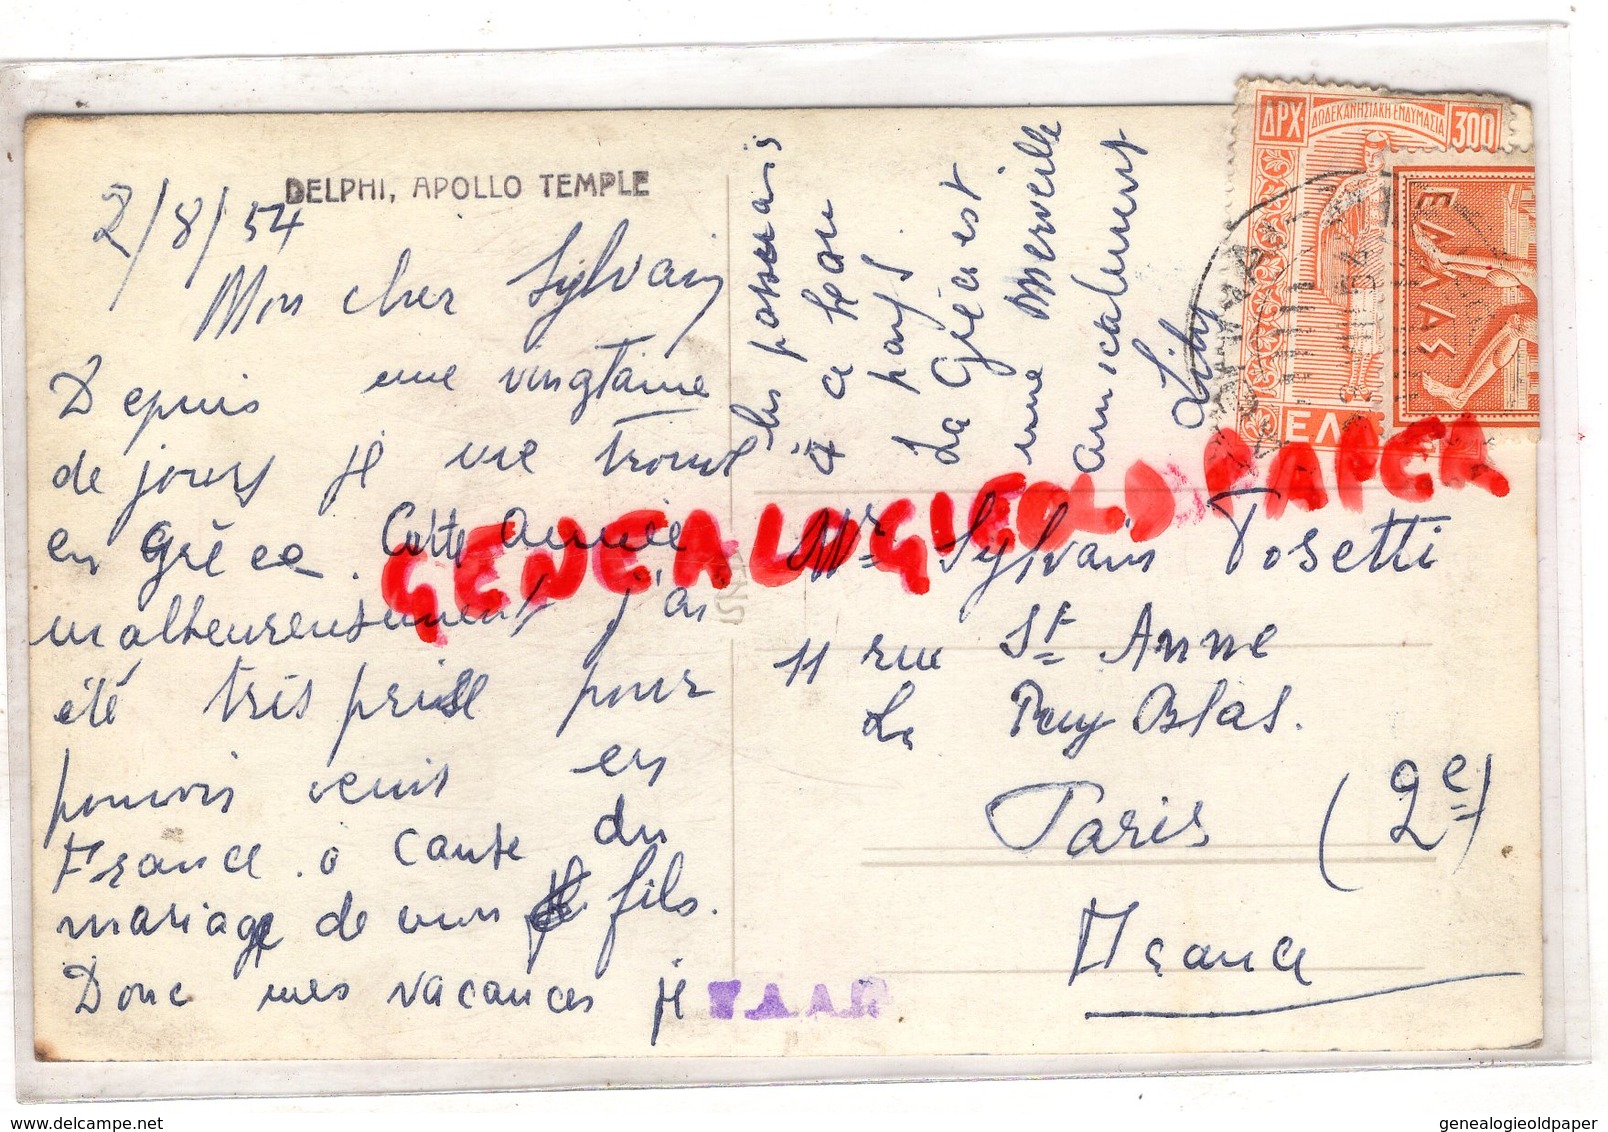 DELPHI, APOLLO TEMPLE
2/8/54
Mon cher Sylvain
Depuis une vingtaine
de jours je me trouve
en Grèce. Cette année
malheureusement j'ai
été très prise pour
pouvoir venir en
France. à cause du
mariage de mon fils.
Donc mes vacances je
les passerais
à ce beau
pays.
La Grèce est
une merveille
amicalement
Lily
ΔΡΧ· ΔΩΔΕΚΑΝΗΣΙΑΚΗ·ΕΝΔΥΜΑΣΙΑ 300
ΕΛΛΑΣ
ΕΛ
GENEALOGIEOLDPAPER
Mr Sylvain Posetti
11 rue St Anne
Le Ruy Blas.
Paris (2e)
France
genealogieoldpaper
www.delcampe.net